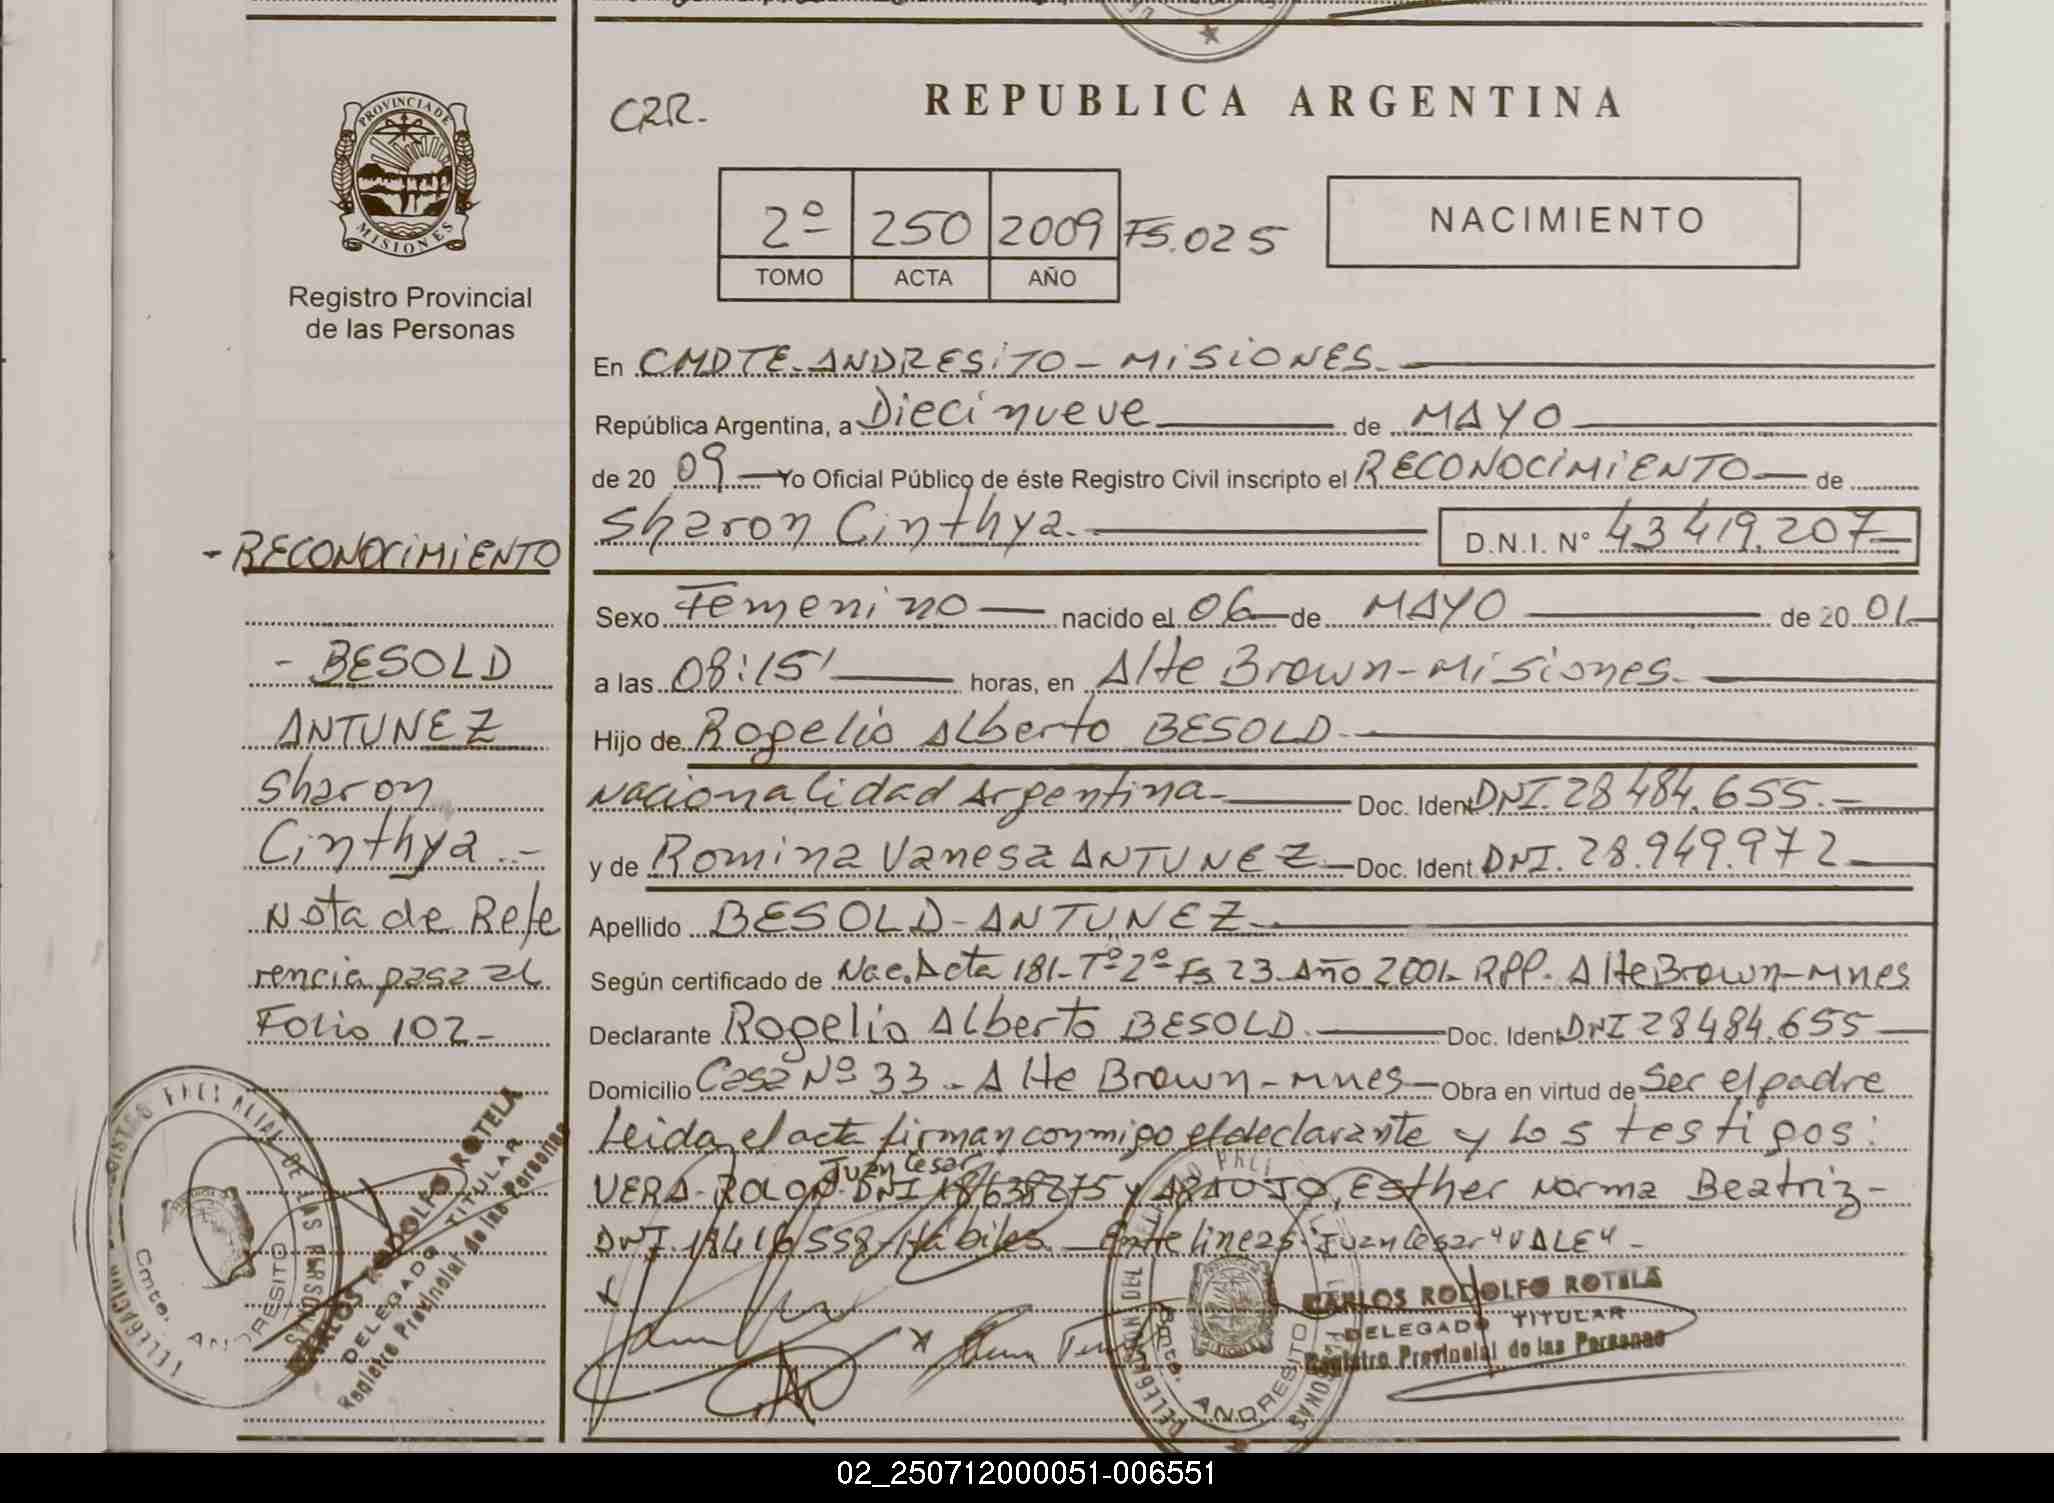 PROVINCIA DE
MISIONES
Registro Provincial
de las Personas
- RECONOCIMIENTO
- BESOLD
ANTUNEZ
Sharon
Cinthya.-
Nota de Refe
rencia pasa al
Folio 102-
CARLOS RODOLFO ROTELA
DELEGADO TITULAR
Registro Provincial de las Personas
CRR.
REPUBLICA ARGENTINA
2º 250 2009 Fs. 025
TOMO ACTA AÑO
NACIMIENTO
En CMDTE. ANDRESITO - MISIONES.
República Argentina, a Diecinueve de MAYO
de 20 09 Yo Oficial Público de éste Registro Civil inscripto el RECONOCIMIENTO de
Sharon Cinthya. D.N.I. N° 43419.207
Sexo Femenino nacido el 06 de MAYO de 20 01
a las 08:15' horas, en Alte Brown - Misiones.
Hijo de Rogelio Alberto BESOLD
Nacionalidad Argentina- Doc. Ident DNI. 28484.655.-
y de Romina Vanesa ANTUNEZ Doc. Ident. DNI. 28.949.972
Apellido BESOLD - ANTUNEZ
Según certificado de Nac. Acta 181- Tº 2º Fs 23. Año 2001- RPP. Alte Brown - Mnes
Declarante Rogelio Alberto BESOLD. Doc. Ident DNI 28484.655
Domicilio Casa Nº 33 - Alte Brown - Mnes Obra en virtud de Ser el padre
Leida el acta firman conmigo el declarante y los testigos:
Juan Cesar
VERA - ROLON - DNI 18638275 y ARAUJO, Esther Norma Beatriz -
DNI. 18416558 - Hábiles. Entre lineas: Juan Cesar "VALE" -
CARLOS RODOLFO ROTELA
DELEGADO TITULAR
Registro Provincial de las Personas
02_250712000051-006551